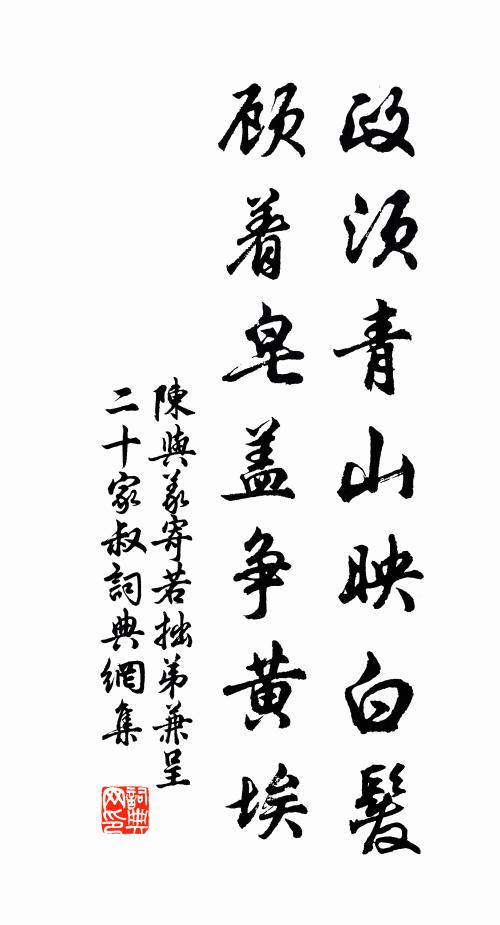 政須青山映白髮
顧着皂盖爭黄埃
陳與義寄若拙弟兼呈
二十家叔詞典網集
詞典
网印